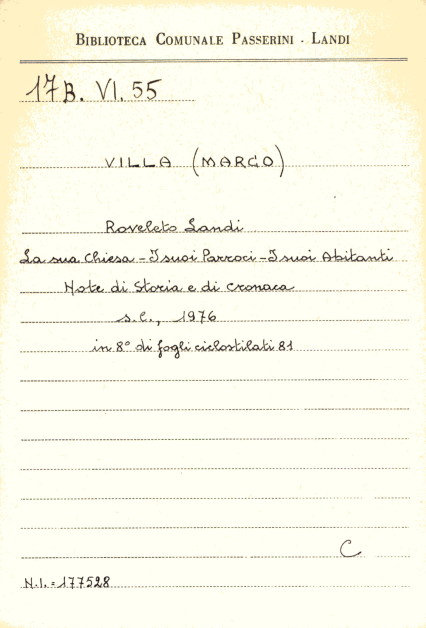 BIBLIOTECA COMUNALE PASSERINI - LANDI
17B. VI. 55
VILLA (MARCO)
Roveleto Landi
La sua Chiesa - I suoi Parroci - I suoi Abitanti
Note di Storia e di Cronaca
s.l., 1976
in 8° di fogli ciclostilati 81
C
N.I. = 177528